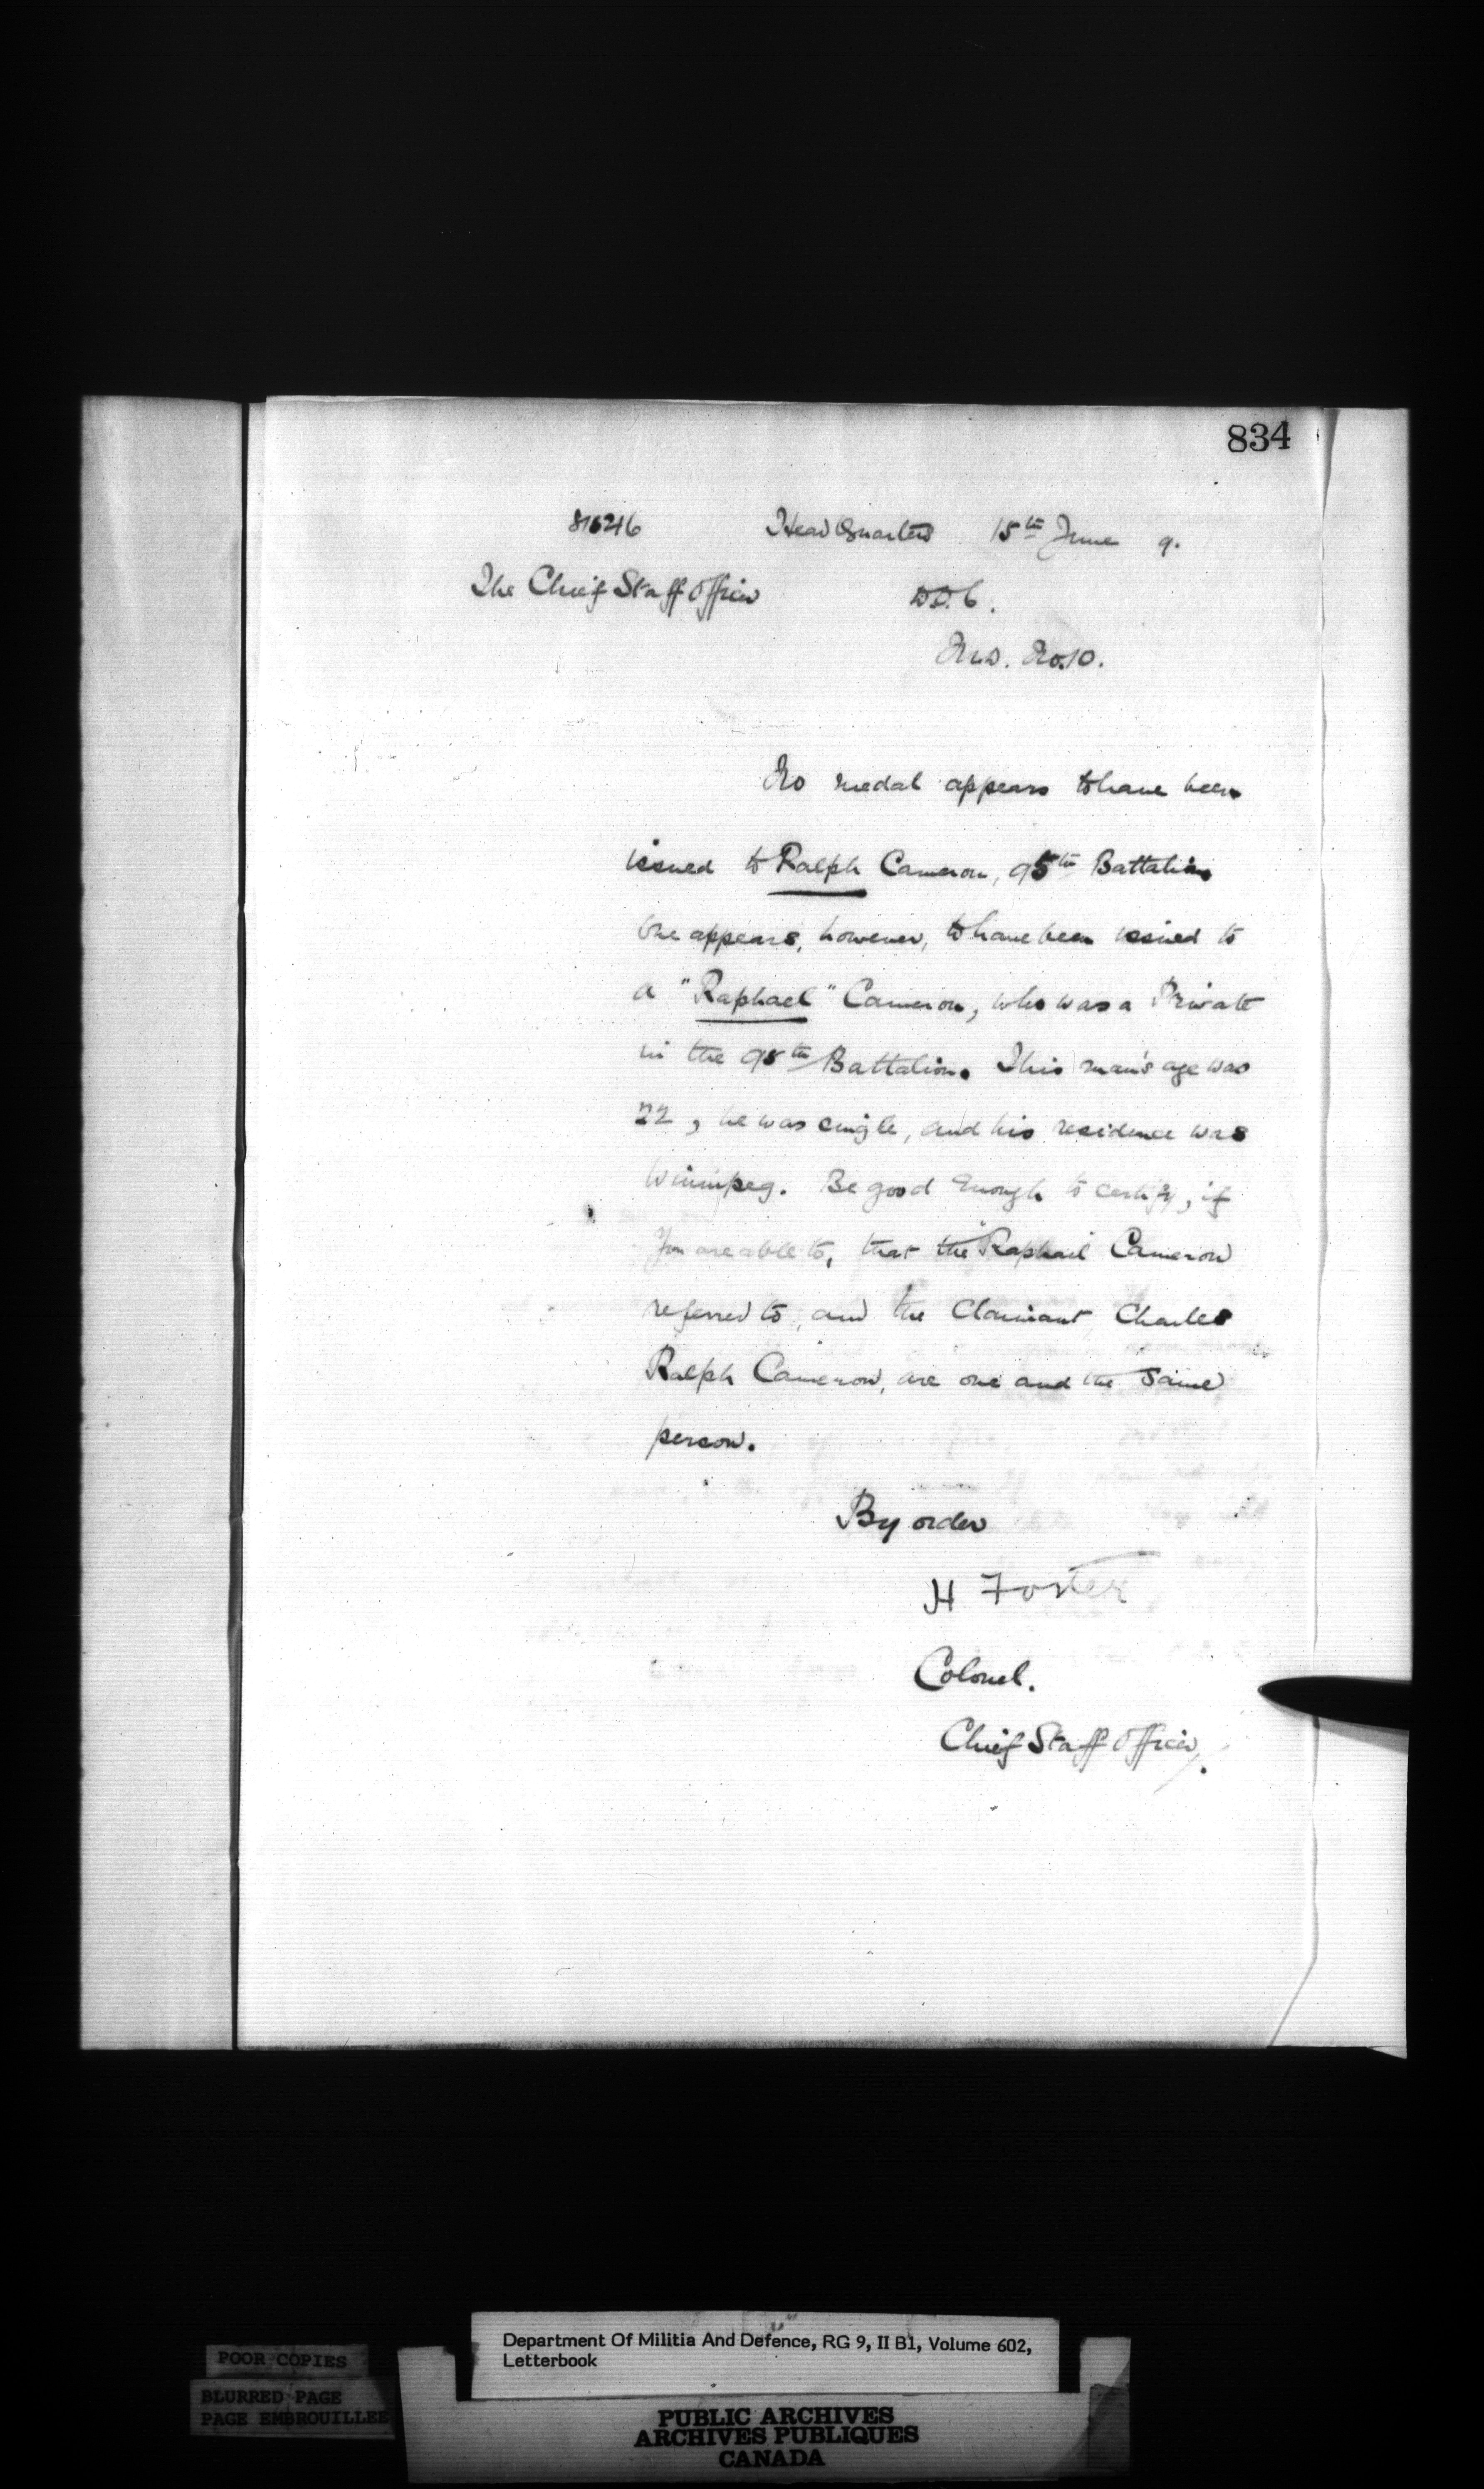 834
81646 Head Quarters 15th June 9.
The Chief Staff Officer D.O.C.
M.D. No.10.
No medal appears to have been
issued to Ralph Cameron, 95th Battalion
One appears, however, to have been issued to
a "Raphael" Cameron, who was a Private
in the 95th Battalion. This man's age was
22, he was single, and his residence was
Winnipeg. Be good enough to certify, if
you are able to, that the Raphael Cameron
referred to, and the Claimant, Charles
Ralph Cameron, are one and the same
person.
By order
H Foster
Colonel.
Chief Staff Officer.
Department Of Militia And Defence, RG 9, II B1, Volume 602,
Letterbook
POOR COPIES
BLURRED PAGE
PAGE EMBROUILLEE
PUBLIC ARCHIVES
ARCHIVES PUBLIQUES
CANADA